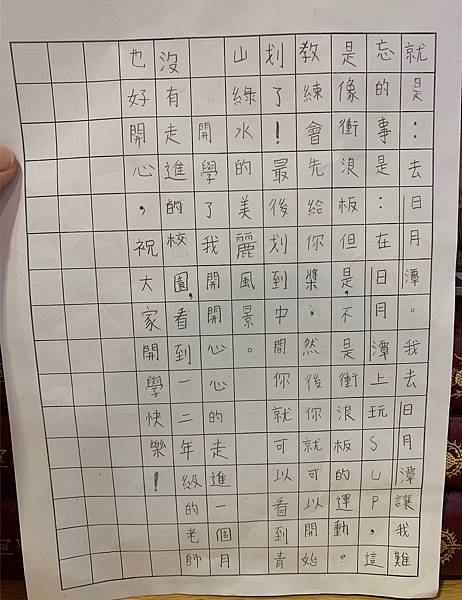 就是：去日月潭。我去日月潭讓我難
忘的事是：在日月潭上玩SUP，這
是像衝浪板但是，不是衝浪板的運動。
教練會先給你槳，然後你就可以開始
划了！最後划到中間你就可以看到青
山綠水的美麗風景。
開學了我開開心心的走進一個月
沒有走進的校園，看到一二年級的老師
也好開心，祝大家開學快樂！